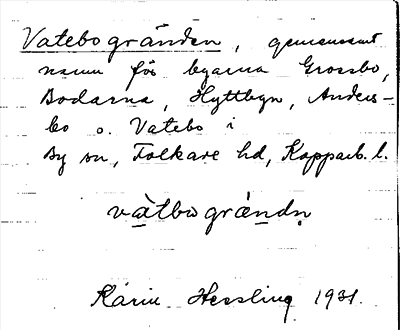 Vatebogränden, gemensamt
namn för byarna Grossbo,
Bodarna, Hyttbyn, Anders-
bo o. Vatebo i
By sn, Folkare hd, Kopparb. l.
vàtbográndn̥
Karin Hessling 1931.